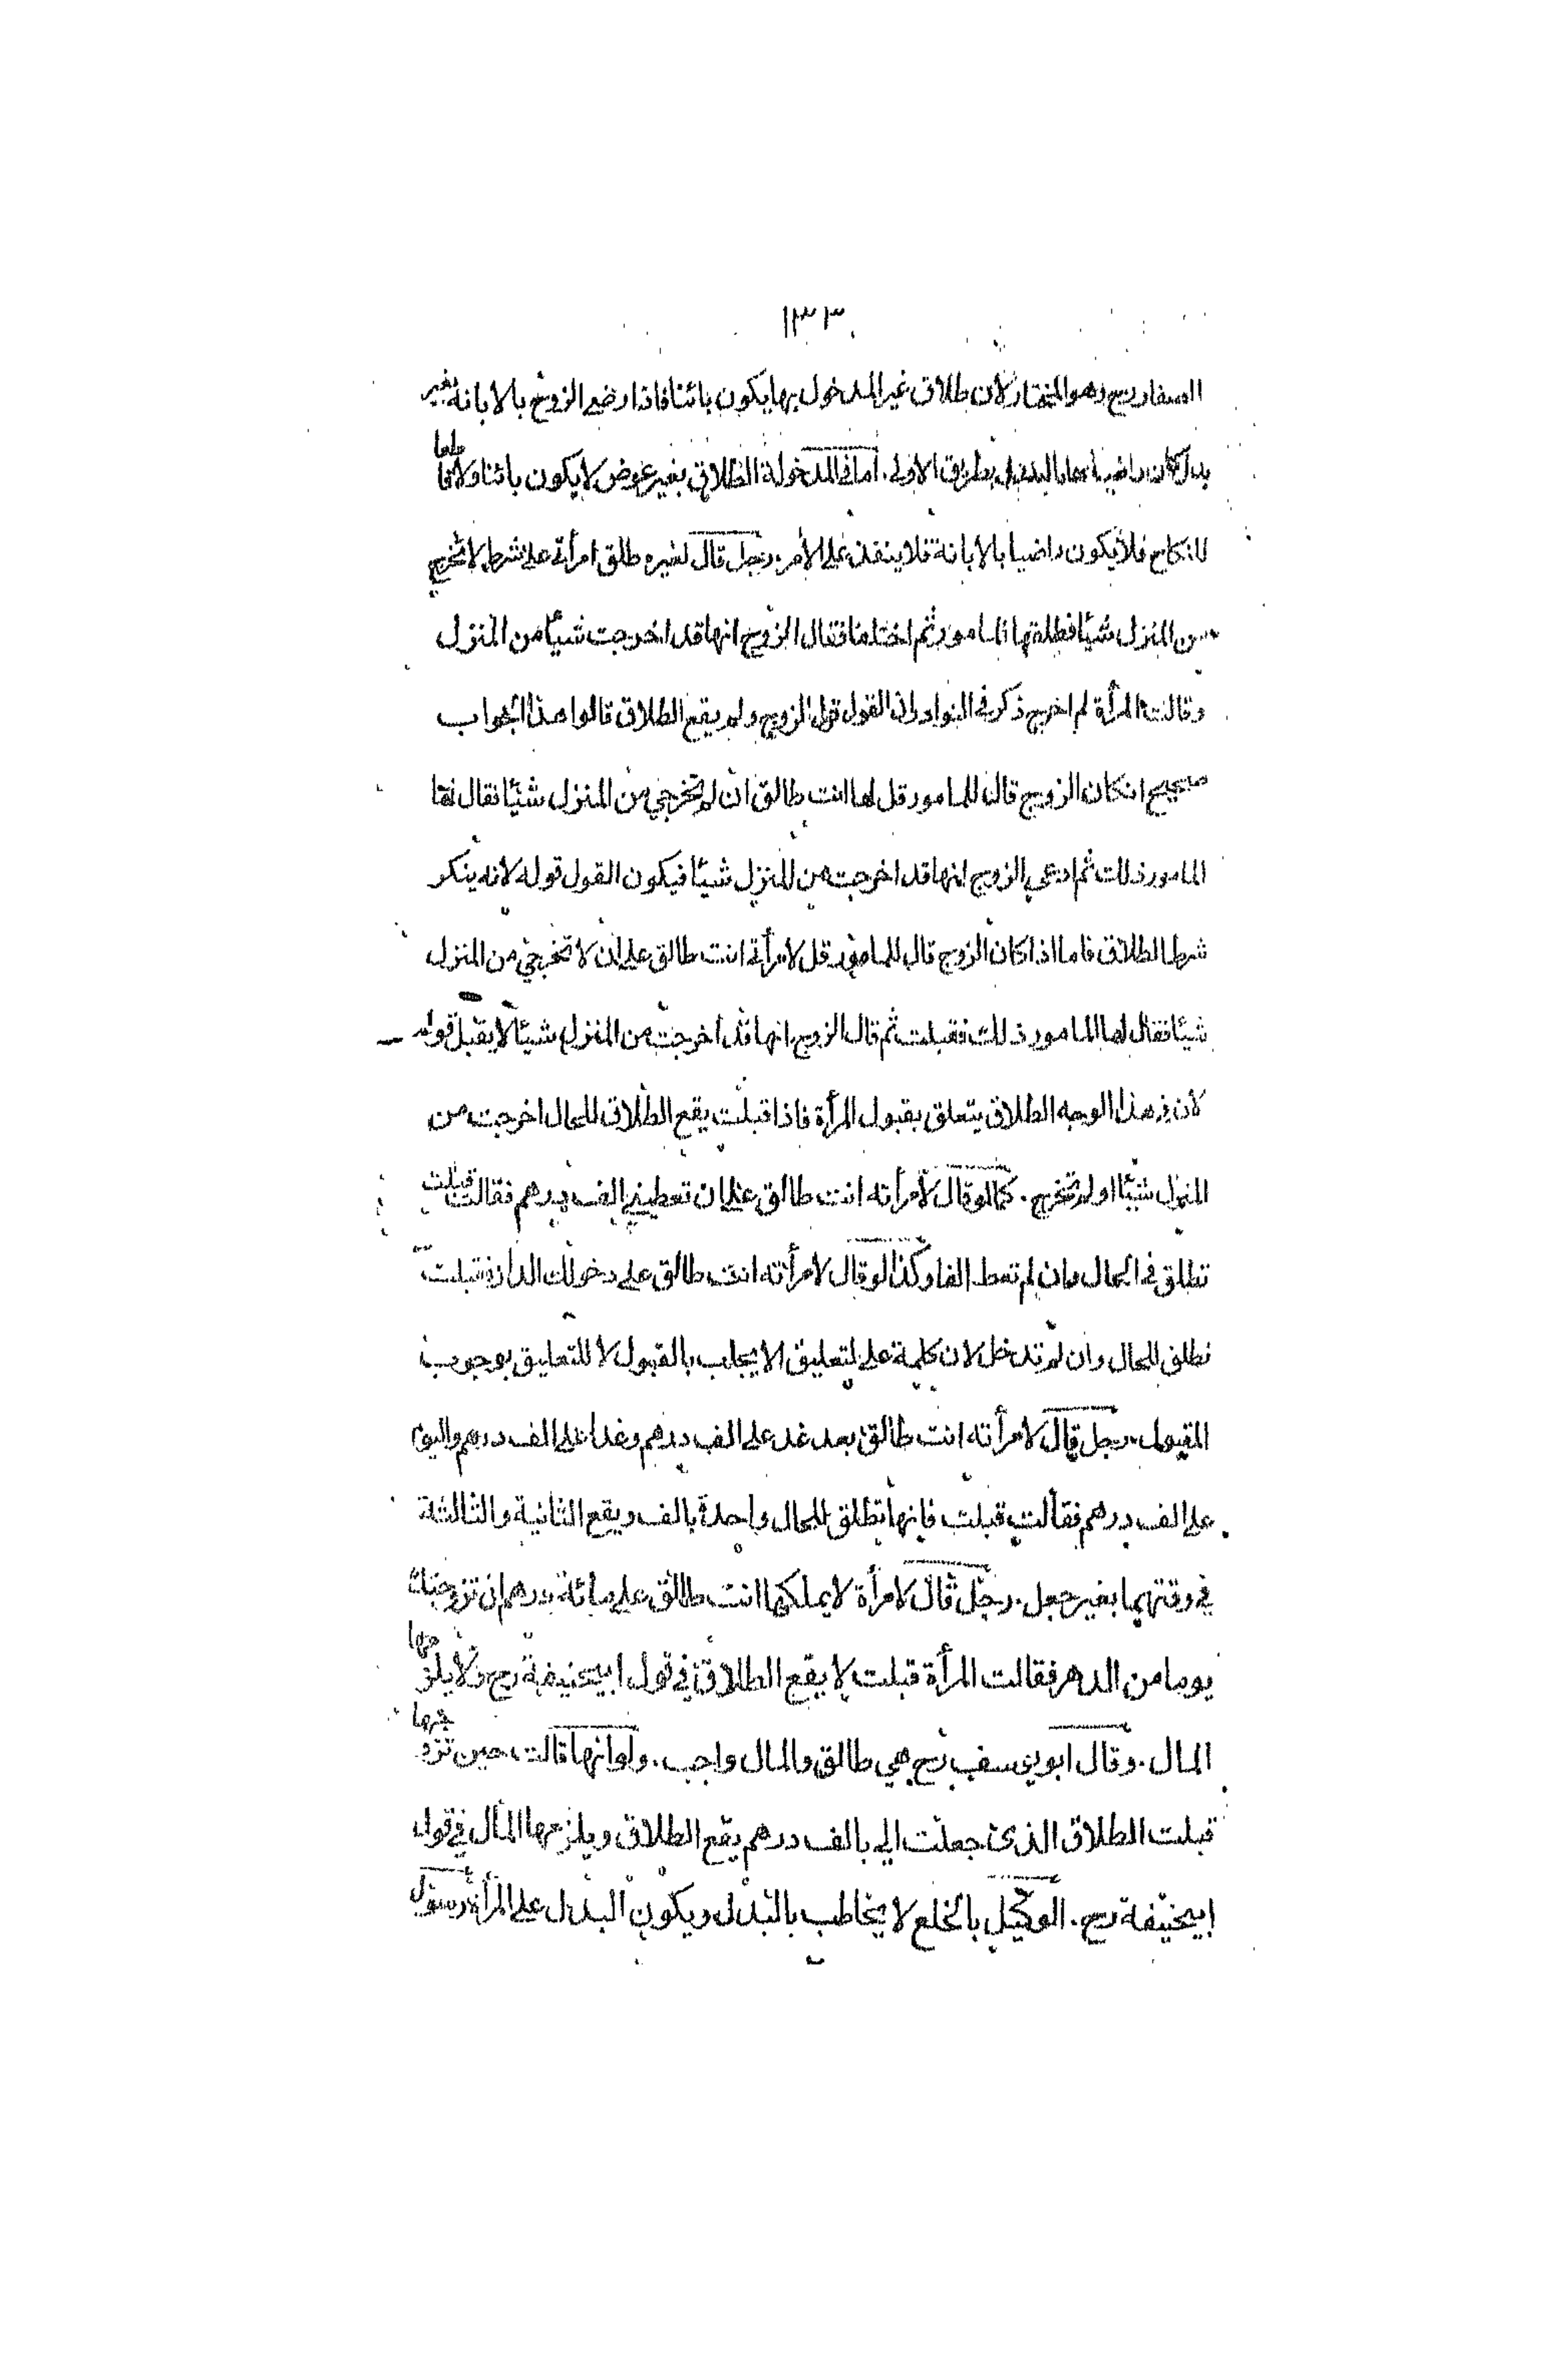 ١٣٣
الصفار رح وهو المختار لان طلاق غير المدخول بها يكون بائنا فاذا رضي الزوج بالابانة بغير
بدل كان راضيا بها بالبدل بطريق الاولى . اما في المدخولة الطلاق بغير عوض لا يكون بائنا ولا قاطعا
للنكاح فلا يكون راضيا بالابانة فلا ينفذ على الأمر . رجل قال لغيره طلق امرأتي على شرط لا تخرج
من المنزل شيئا فطلقها المامور ثم اختلفا فقال الزوج انها قد اخرجت شيئا من المنزل
وقالت المرأة لم اخرج ذكر في النوادر ان القول قول الزوج ولم يقع الطلاق قالوا هذا الجواب
صحيح انكان الزوج قال للمامور قل لها انت طالق ان لم تخرجي من المنزل شيئا فقال لها
المامور ذلك ثم ادعى الزوج انها قد اخرجت من المنزل شيئا فيكون القول قوله لانه ينكر
شرط الطلاق فاما اذا كان الزوج قال للمامور قل لامرأتي انت طالق على ان لا تخرجي من المنزل
شيئا فقال لها المامور ذلك فقبلت ثم قال الزوج انها قد اخرجت من المنزل شيئا لا يقبل قوله
لان في هذا الوجه الطلاق يتعلق بقبول المرأة فاذا قبلت يقع الطلاق للحال اخرجت من
المنزل شيئا اولم تخرج . كما لو قال لامرأته انت طالق على ان تعطيني الف درهم فقالت قبلت
تطلق في الحال وان لم تعط الفا وكذا لو قال لامرأته انت طالق على دخولك الدار فقبلت
تطلق للحال وان لم تدخل لان كلمة على لتعليق الايجاب بالقبول لا للتعليق بوجوب
المقبول . رجل قال لامرأته انت طالق بعد غد على الف درهم وغدا على الف درهم واليوم
على الف درهم فقالت قبلت فانها تطلق للحال واحدة بالف ويقع الثانية والثالثة
في وقتهما بغير جعل . رجل قال لامرأة لا يملكها انت طالق على مائة درهم ان تزوجتك
يوما من الدهر فقالت المرأة قبلت لا يقع الطلاق في قول ابيحنيفة رح ولا يلزمها
المال . وقال ابويوسف رح هي طالق والمال واجب . ولو انها قالت حين تزوجها
قبلت الطلاق الذي جعلت الي بالف درهم يقع الطلاق ويلزمها المال في قول
ابيحنيفة رح . الوكيل بالخلع لا يخاطب بالبدل ويكون البدل على المرأة رسول